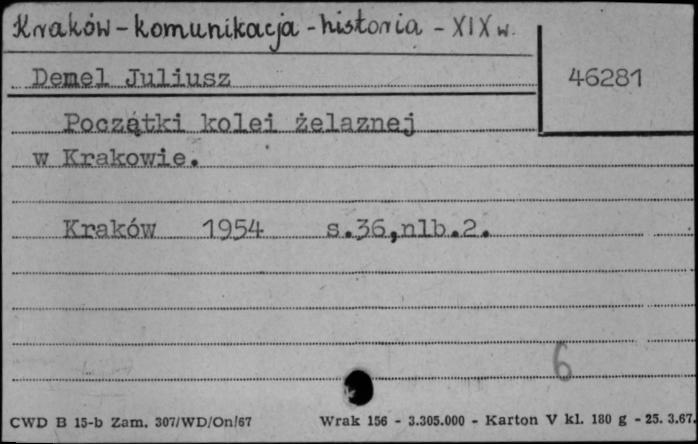 Kraków - komunikacja - historia - XIX w.
Demel Juliusz
46281
Początki kolei żelaznej
w Krakowie.
Kraków 1954 s.36,nlb.2.
6
CWD B 15-b Zam. 307/WD/On/67 Wrak 156 - 3.305.000 - Karton V kl. 180 g - 25. 3.67.